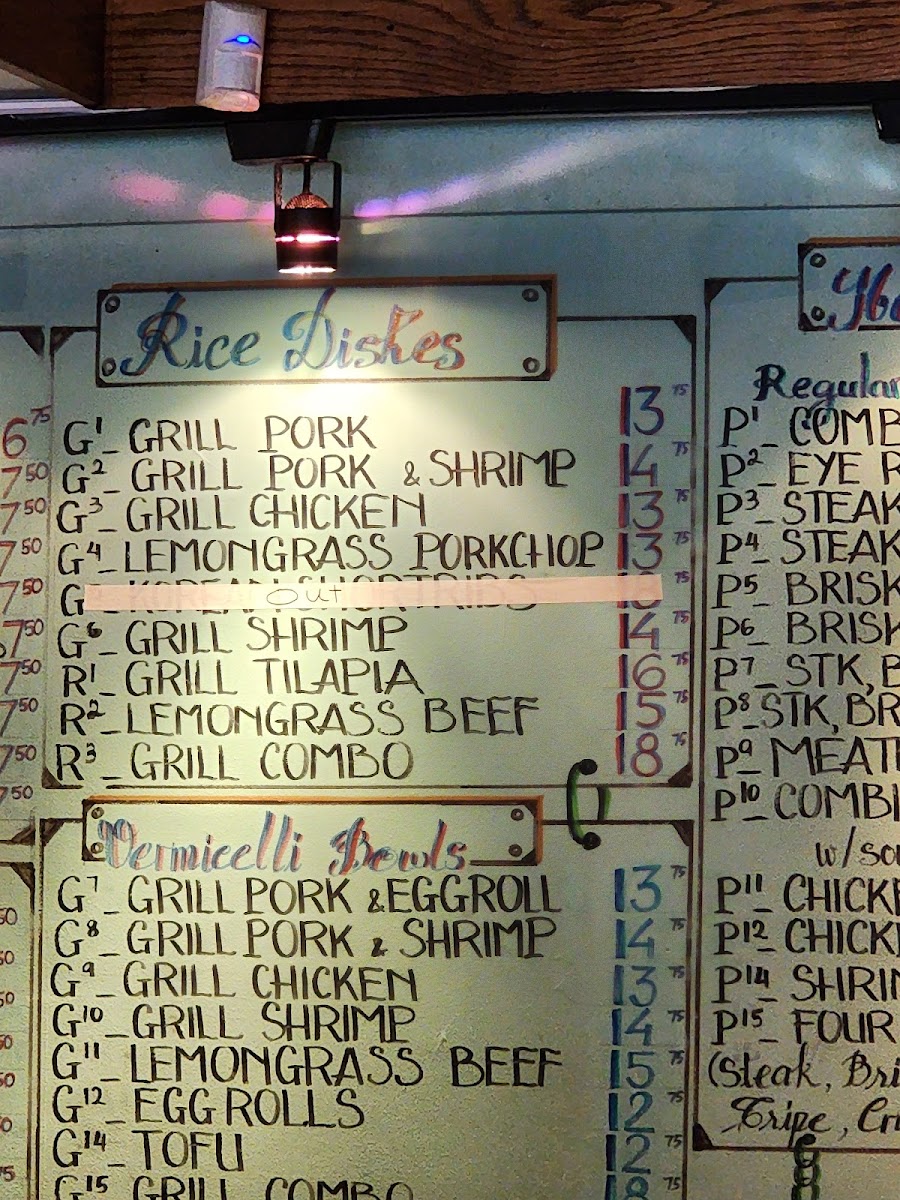 Rice Dishes
G1_ GRILL PORK 13 75
G2_ GRILL PORK & SHRIMP 14 75
G3_ GRILL CHICKEN 13 75
G4_ LEMONGRASS PORKCHOP 13 75
G out 75
G6_ GRILL SHRIMP 14 75
R1_ GRILL TILAPIA 16 75
R2_ LEMONGRASS BEEF 15 75
R3_ GRILL COMBO 18 75
Vermicelli Bowls
G7_ GRILL PORK & EGGROLL 13 75
G8_ GRILL PORK & SHRIMP 14 75
G9_ GRILL CHICKEN 13 75
G10_ GRILL SHRIMP 14 75
G11_ LEMONGRASS BEEF 15 75
G12_ EGG ROLLS 12 75
G14_ TOFU 12 75
G15 GRILL COMBO 18 75
6 75
7 50
7 50
7 50
7 50
7 50
7 50
7 50
7 50
Regular
P1_ COMB
P2_ EYE R
P3_ STEAK
P4_ STEAK
P5_ BRISK
P6_ BRISK
P7_ STK, B
P8_ STK, BR
P9_ MEAT
P10_ COMBI
w/ so
P11_ CHICKE
P12_ CHICK
P14_ SHRIM
P15_ FOUR
(Steak, Bri
Tripe, Cr